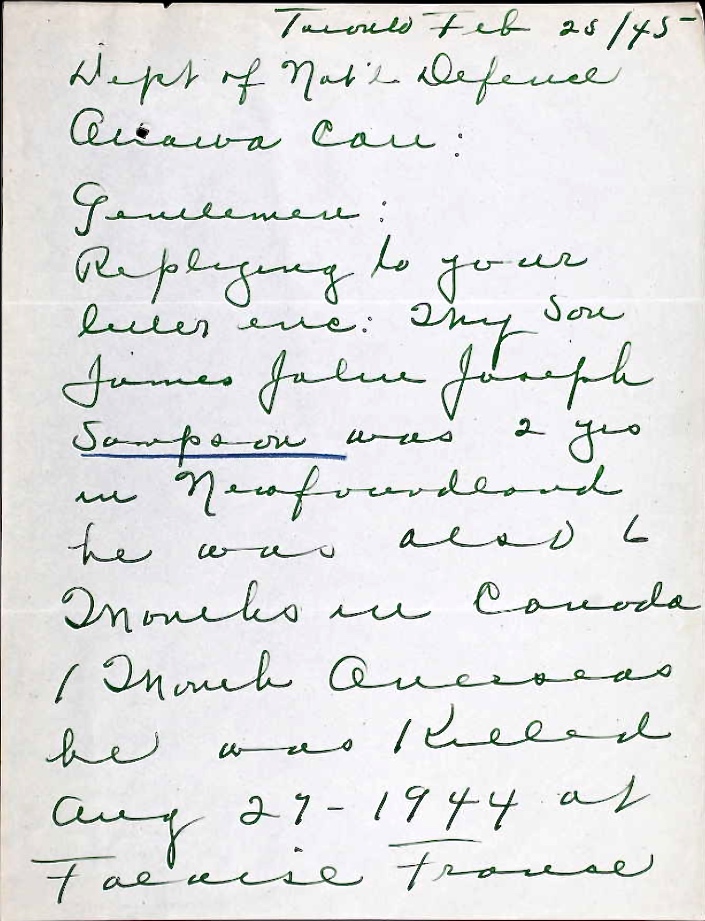 Toronto Feb 28/45
Dept of Nat'l Defence
Ottawa Can:
Gentlemen:
Replying to your
letter enc: My Son
James John Joseph
Sampson was 2 yrs
in Newfoundland
he was also 6
Months in Canada
1 Month Overseas
he was Killed
Aug 27-1944 at
Falaise France